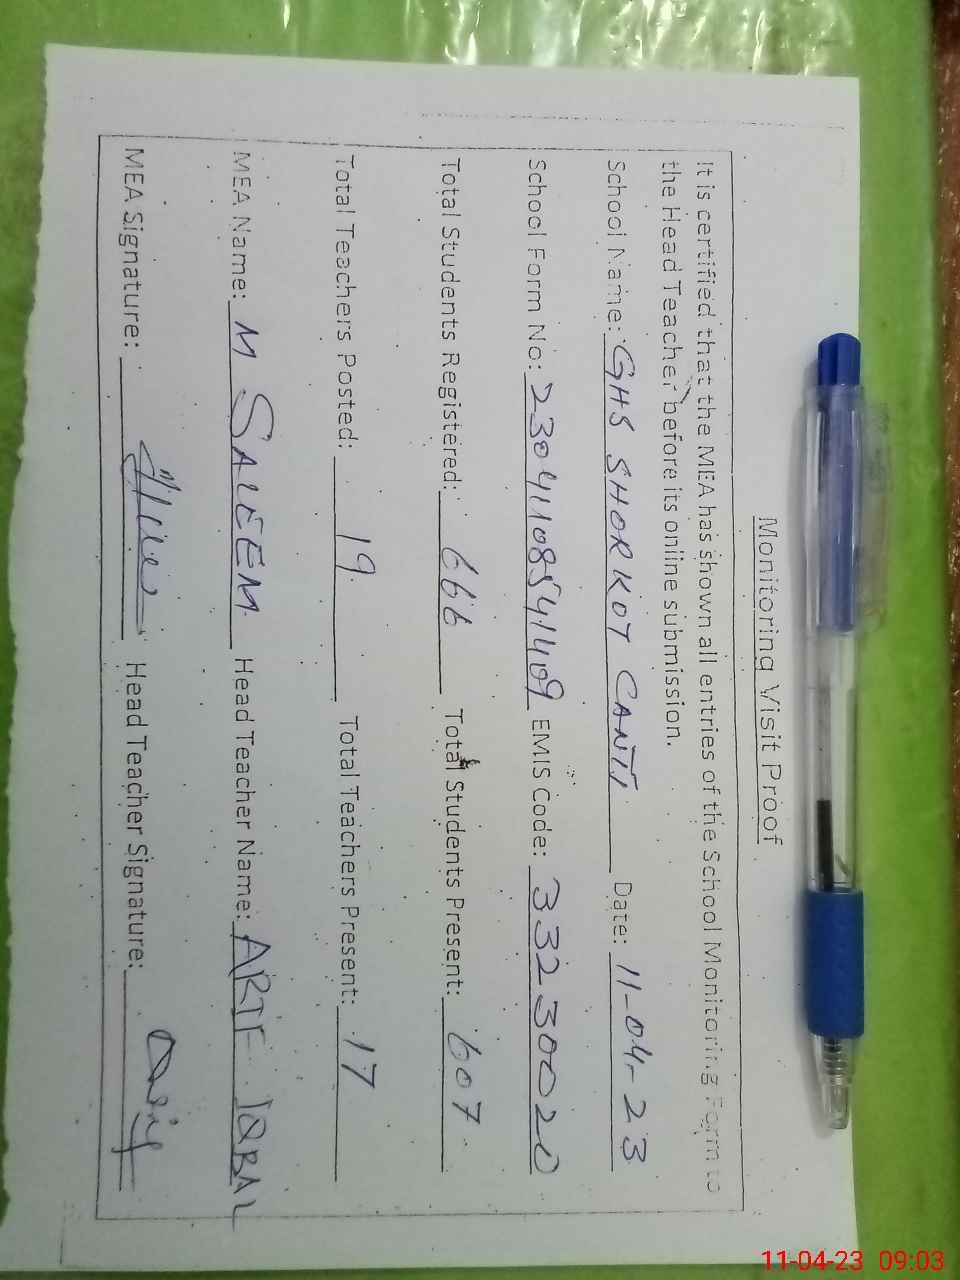 Monitoring Visit Proof
It is certified that the MEA has shown all entries of the School Monitoring Form to
the Head Teacher before its online submission.
School Name: GHS SHORKOT CANTT Date: 11-04-23
School Form No: EMIS Code: 33230020
Total Students Registered: 666 Total Students Present: 607
Total Teachers Posted: 19 Total Teachers Present: 17
MEA Name: M SALEEM Head Teacher Name: ARIF IQBAL
MEA Signature: Head Teacher Signature:
11-04-23 09:03